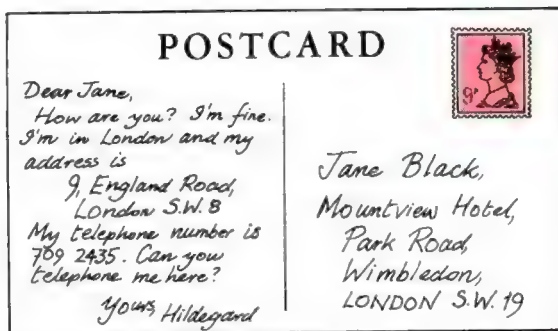 POSTCARD
Dear Jane,
How are you? I'm fine.
I'm in London and my
address is
9, England Road,
London S.W. 8
My telephone number is
709 2435. Can you
telephone me here?
Yours, Hildegard
9p
Jane Black,
Mountview Hotel,
Park Road,
Wimbledon,
LONDON S.W. 19